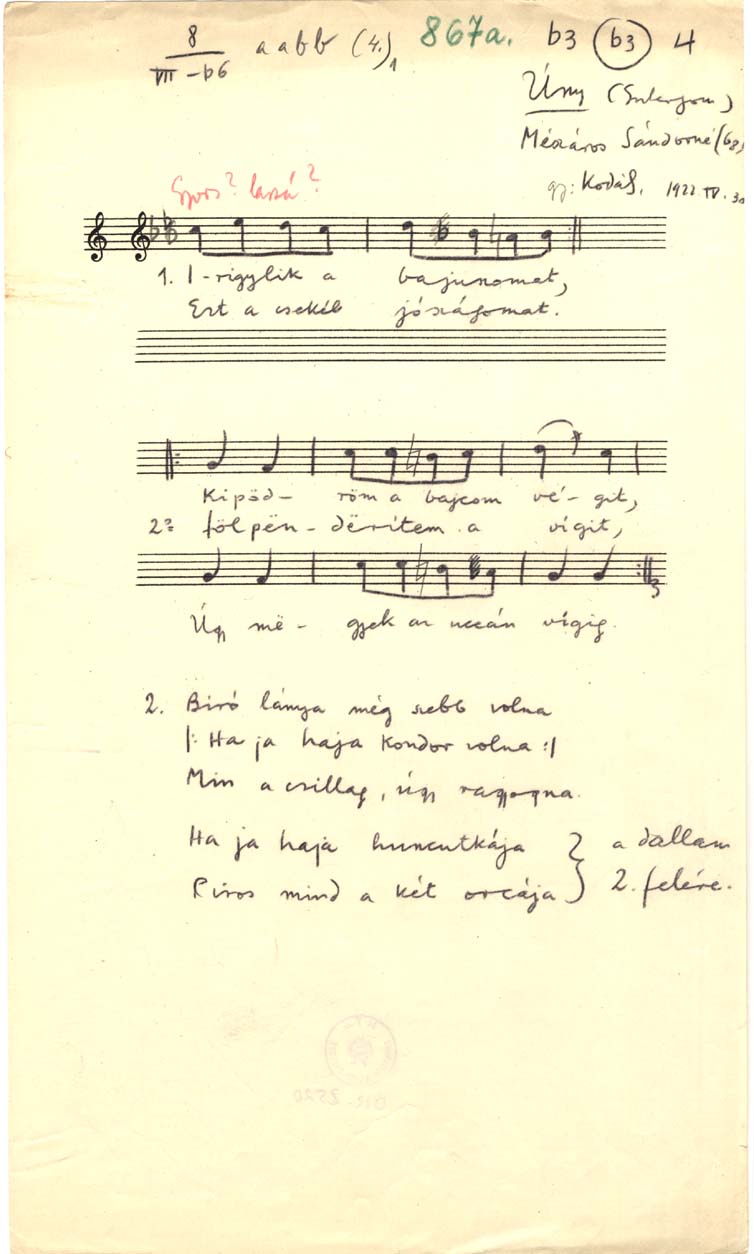 8
VII – b6
a a b b (4.)
867a.
b3 (b3) 4
Úny (Esztergom)
Mészáros Sándorné (68)
gy: Kodály, 1922 IV.
Gyors? lassú?
1. I-rigylik a bajuszomat,
Ezt a csekél jószágomat.
Kipöd- röm a bajcom vé- git,
2º föl pën- dërítem a vígit,
Úgy më- gyek az uccán vígig.
2. Biró lánya még szebb volna
|: Ha ja haja kondor volna :|
Min a csillag, úgy ragyogna.
Ha ja haja huncutkája } a dallam
Piros mind a két orcája } 2. felére.